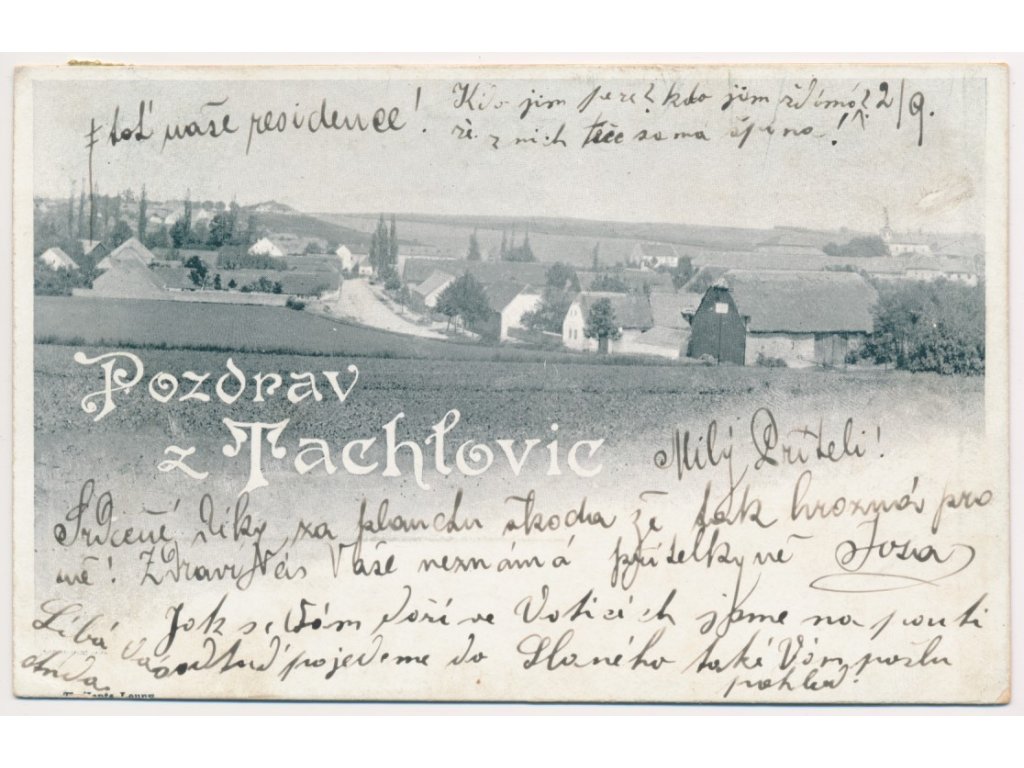 ‡ toť naše residence!
Kdo jim pere? kdo jim ždímá? 2/9.
že z nich teče sama špína!
Pozdrav
z Tachlovic
Milý Příteli!
Srdečné díky za plančtu škoda že tak hrozná pro
mě! Zdraví Vás Vaše neznámá přítelkyně Josa
Jak se Vám daří ve Voticích jsme na pouti
odtud pojedeme do Slaného také Vám pošlu
pohled!
Líbá Vás